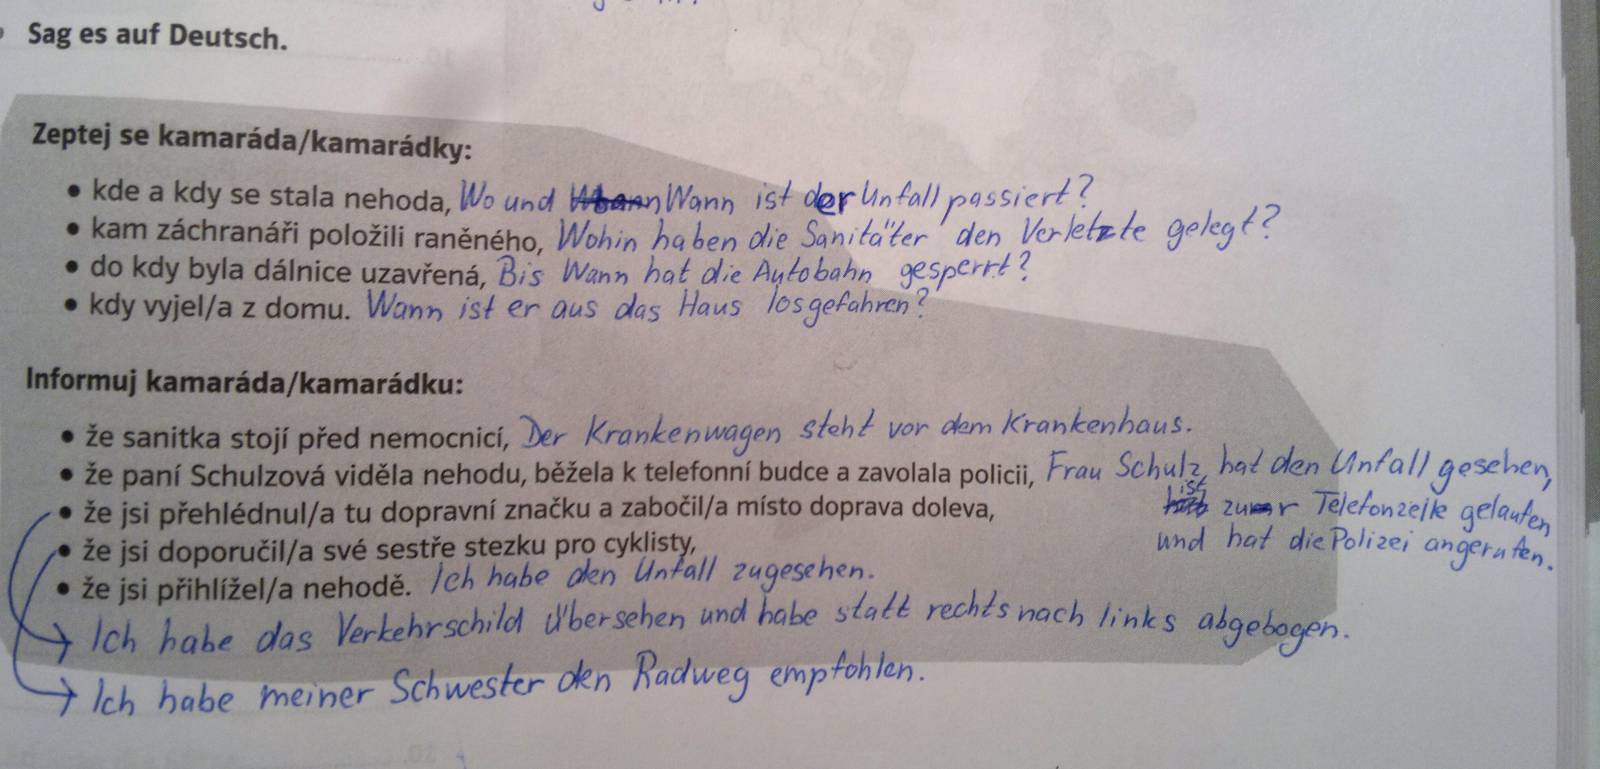 Sag es auf Deutsch.
Zeptej se kamaráda/kamarádky:
• kde a kdy se stala nehoda, Wo und Wann ist der Unfall passiert?
• kam záchranáři položili raněného, Wohin haben die Sanitäter den Verletzte gelegt?
• do kdy byla dálnice uzavřená, Bis Wann hat die Autobahn gesperrt?
• kdy vyjel/a z domu. Wann ist er aus das Haus losgefahren?
Informuj kamaráda/kamarádku:
• že sanitka stojí před nemocnicí, Der Krankenwagen steht vor dem Krankenhaus.
• že paní Schulzová viděla nehodu, běžela k telefonní budce a zavolala policii, Frau Schulz hat den Unfall gesehen,
ist zur Telefonzelle gelaufen
und hat die Polizei angerufen.
• že jsi přehlédnul/a tu dopravní značku a zabočil/a místo doprava doleva,
• že jsi doporučil/a své sestře stezku pro cyklisty,
• že jsi přihlížel/a nehodě. Ich habe den Unfall zugesehen.
Ich habe das Verkehrschild übersehen und habe statt rechts nach links abgebogen.
Ich habe meiner Schwester den Radweg empfohlen.